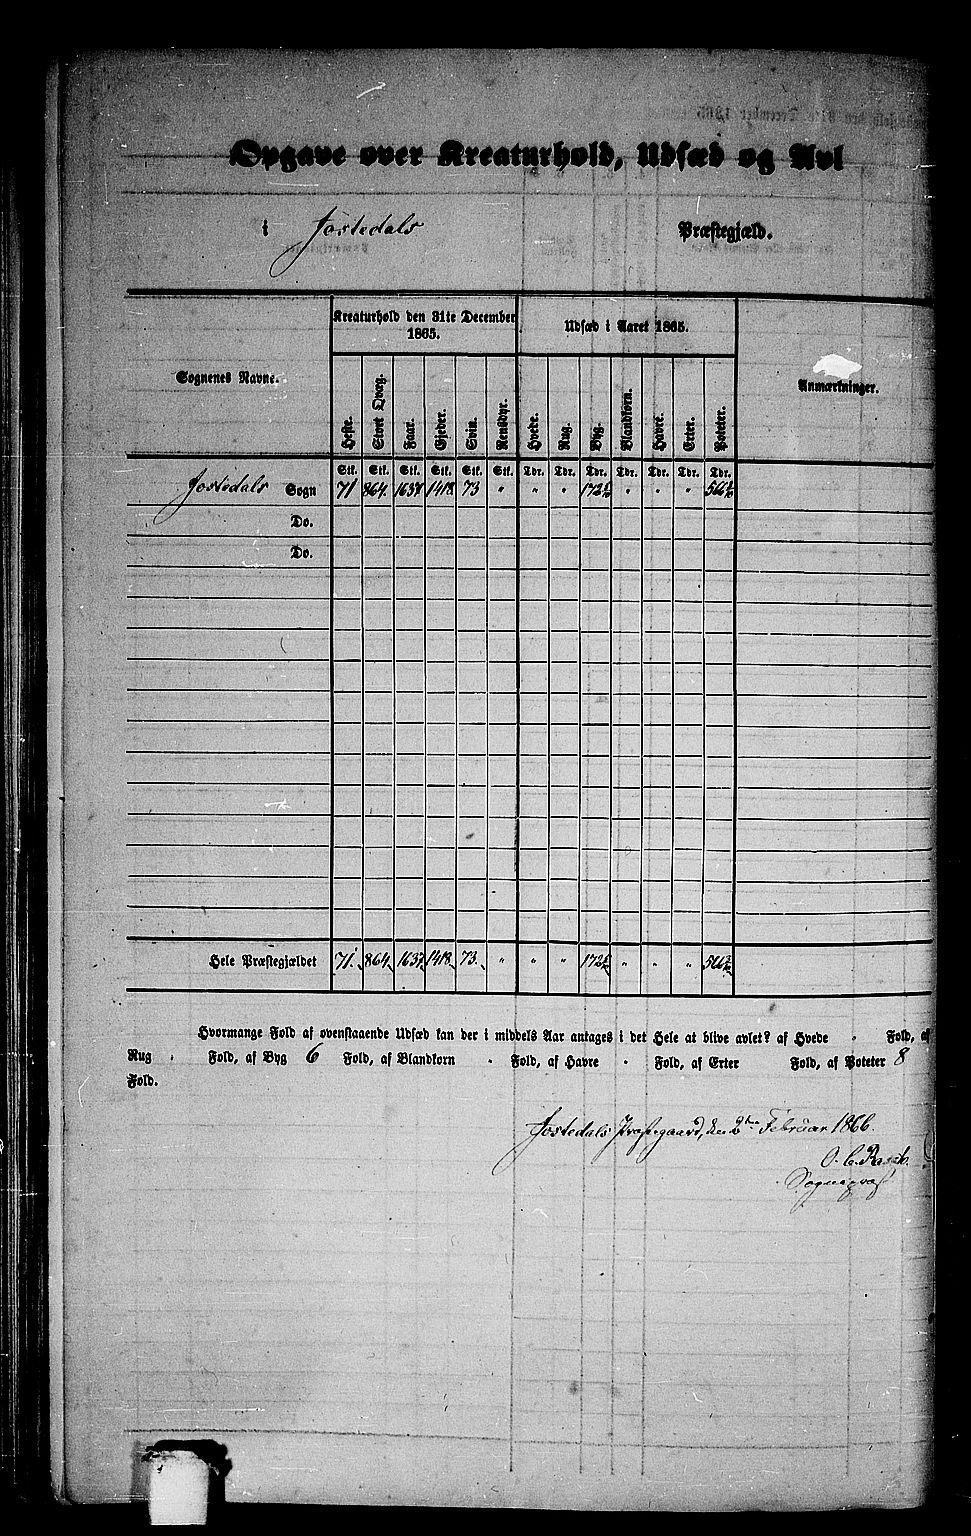 Opgave over Kreaturhold, Udsæd og Avl
i Jostedals Præstegjæld.
Sognenes Navne. Kreaturhold den 31te December 1865. Udsæd i Aaret 1865. Anmærkninger.
Heste. Stort Qvæg. Faar. Gjeder. Svin. Rensdyr. Hvede. Rug. Byg. Blandkorn. Havre. Erter. Poteter.
Stk. Stk. Stk. Stk. Stk. Stk. Tdr. Tdr. Tdr. Tdr. Tdr. Tdr. Tdr.
Jostedals Sogn 71 864. 1637 1418 73 " " " 172 " " " 566
Do.
Do.
Hele Præstegjældet 71. 864. 1637 1418. 73. " " " 172 " " " 566
Hvormange Fold af ovenstaaende Udsæd kan der i middels Aar antages i det Hele at blive avlet? af Hvede " Fold, af
Rug " Fold, af Byg 6 Fold, af Blandkorn " Fold, af Havre " Fold, af Erter Fold, af Poteter 8
Fold.
Jostedals Præstegaard, den 2den Februar 1866.
O. C.
Sognepræst